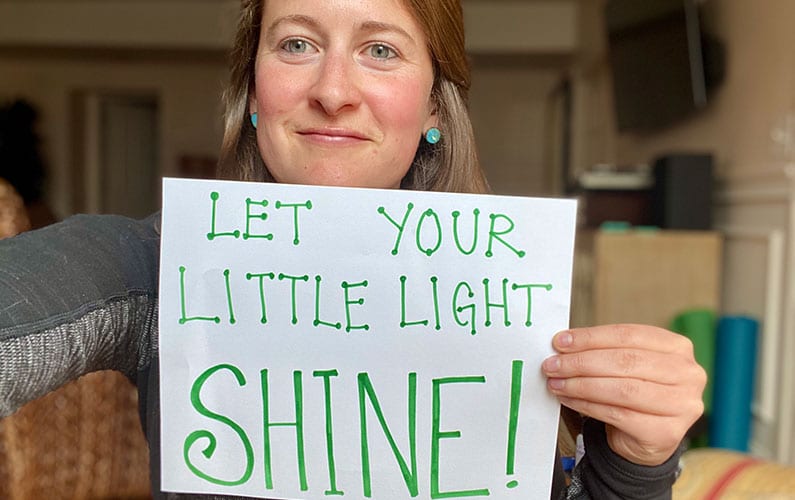 LET YOUR
LITTLE LIGHT
SHINE!